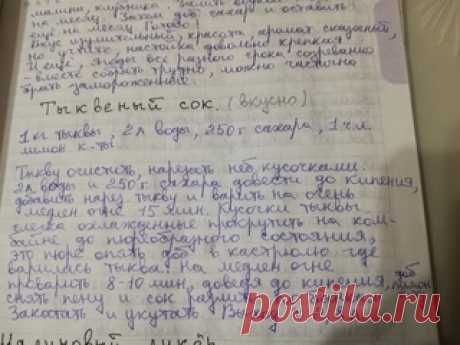 малина, клубника. Залить водкой
на месяц. Затем доб. сахар и оставить
ещё на месяц. Готово!
Вкус изумительный, красота, аромат сказочный,
но учтите настойка довольно крепкая!
И ещё, ягоды все разного срока созревания
- вместе собрать трудно, можно частично
брать замороженные.
Тыквеный сок. (вкусно)
1 кг тыквы, 2 л воды, 250 г сахара, 1 ч.л.
лимон. к-ты
Тыкву очистить, нарезать неб. кусочками.
2 л воды и 250 г. сахара довести до кипения,
добавить нарез. тыкву и варить на очень
медлен огне 15 мин. Кусочки тыквы
слегка охлажденные прокрутить на ком-
байне до пюреобразного состояния,
это пюре опять доб в кастрюлю где
варилась тыква. На медлен огне
проварить 8-10 мин, доведя до кипения, доб лимон
снять пену и сок разлить
Закатать и укутать. Выход
Малиновый ликёр
postila.ru